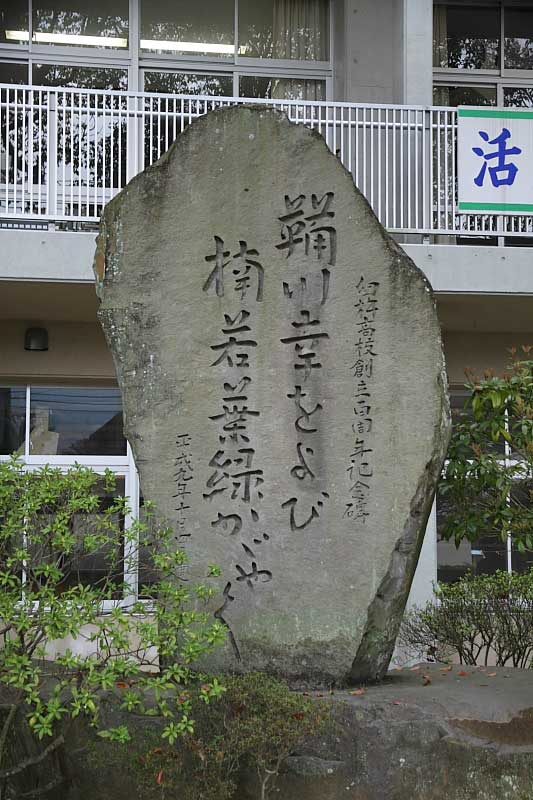 臼杵高校創立百周年記念碑
鞴川幸をよび
楠若葉緑かゞやく
平成九年十月
活